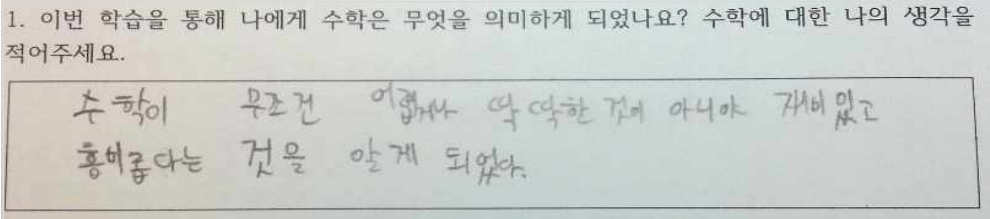 1. 이번 학습을 통해 나에게 수학은 무엇을 의미하게 되었나요? 수학에 대한 나의 생각을
적어주세요.
수학이 무조건 어렵거나 딱딱한 것이 아니야 재비있고
흥비롭다는 것을 알게 되었다.